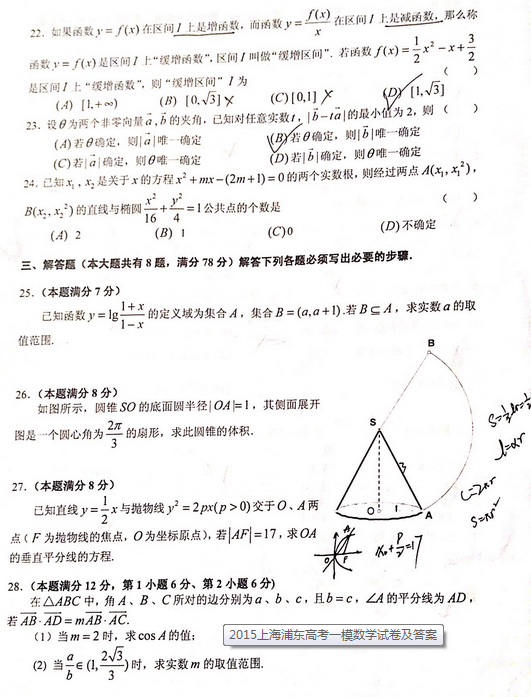 22. 如果函数 y = f(x) 在区间 I 上是增函数，而函数 y = f(x)/x 在区间 I 上是减函数，那么称
函数 y = f(x) 是区间 I 上“缓增函数”，区间 I 叫做“缓增区间”．若函数 f(x) = 1/2 x² − x + 3/2
是区间 I 上“缓增函数”，则“缓增区间” I 为 （ ）
(A) [1,+∞) (B) [0,√3] × (C) [0,1] × (D) [1,√3]
23. 设 θ 为两个非零向量 a⃗ , b⃗ 的夹角，已知对任意实数 t，| b⃗ − t a⃗ | 的最小值为 2，则 （ ）
(A) 若 θ 确定，则 | a⃗ | 唯一确定 (B) 若 θ 确定，则 | b⃗ | 唯一确定
(C) 若 | a⃗ | 确定，则 θ 唯一确定 (D) 若 | b⃗ | 确定，则 θ 唯一确定
24. 已知 x₁ , x₂ 是关于 x 的方程 x² + mx − (2m + 1) = 0 的两个实数根，则经过两点 A(x₁, x₁²)，
B(x₂, x₂²) 的直线与椭圆 x²/16 + y²/4 = 1 公共点的个数是 （ ）
(A) 2 (B) 1 (C) 0 (D) 不确定
三、解答题（本大题共有 8 题，满分 78 分）解答下列各题必须写出必要的步骤.
25.（本题满分 7 分）
已知函数 y = lg (1+x)/(1−x) 的定义域为集合 A，集合 B = (a, a + 1) .若 B ⊆ A，求实数 a 的取
值范围.
26.（本题满分 8 分）
如图所示，圆锥 SO 的底面圆半径 | OA |= 1，其侧面展开
图是一个圆心角为 2π/3 的扇形，求此圆锥的体积.
B
S
3
O
1
A
l=αr
C=2πr
S=πr²
27.（本题满分 8 分）
已知直线 y = 1/2 x 与抛物线 y² = 2px(p > 0) 交于 O、A 两
点（ F 为抛物线的焦点，O 为坐标原点），若 | AF | = 17，求 OA
的垂直平分线的方程.
A
F
x₀+p/2=17
28.（本题满分 12 分，第 1 小题 6 分、第 2 小题 6 分）
在 △ABC 中，角 A、B、C 所对的边分别为 a、b、c，且 b = c，∠A 的平分线为 AD，
若 AB⃗ · AD⃗ = mAB⃗ · AC⃗.
（1）当 m = 2 时，求 cos A 的值；
(2) 当 a/b ∈ (1, 2√3/3) 时，求实数 m 的取值范围.
2015上海浦东高考一模数学试卷及答案